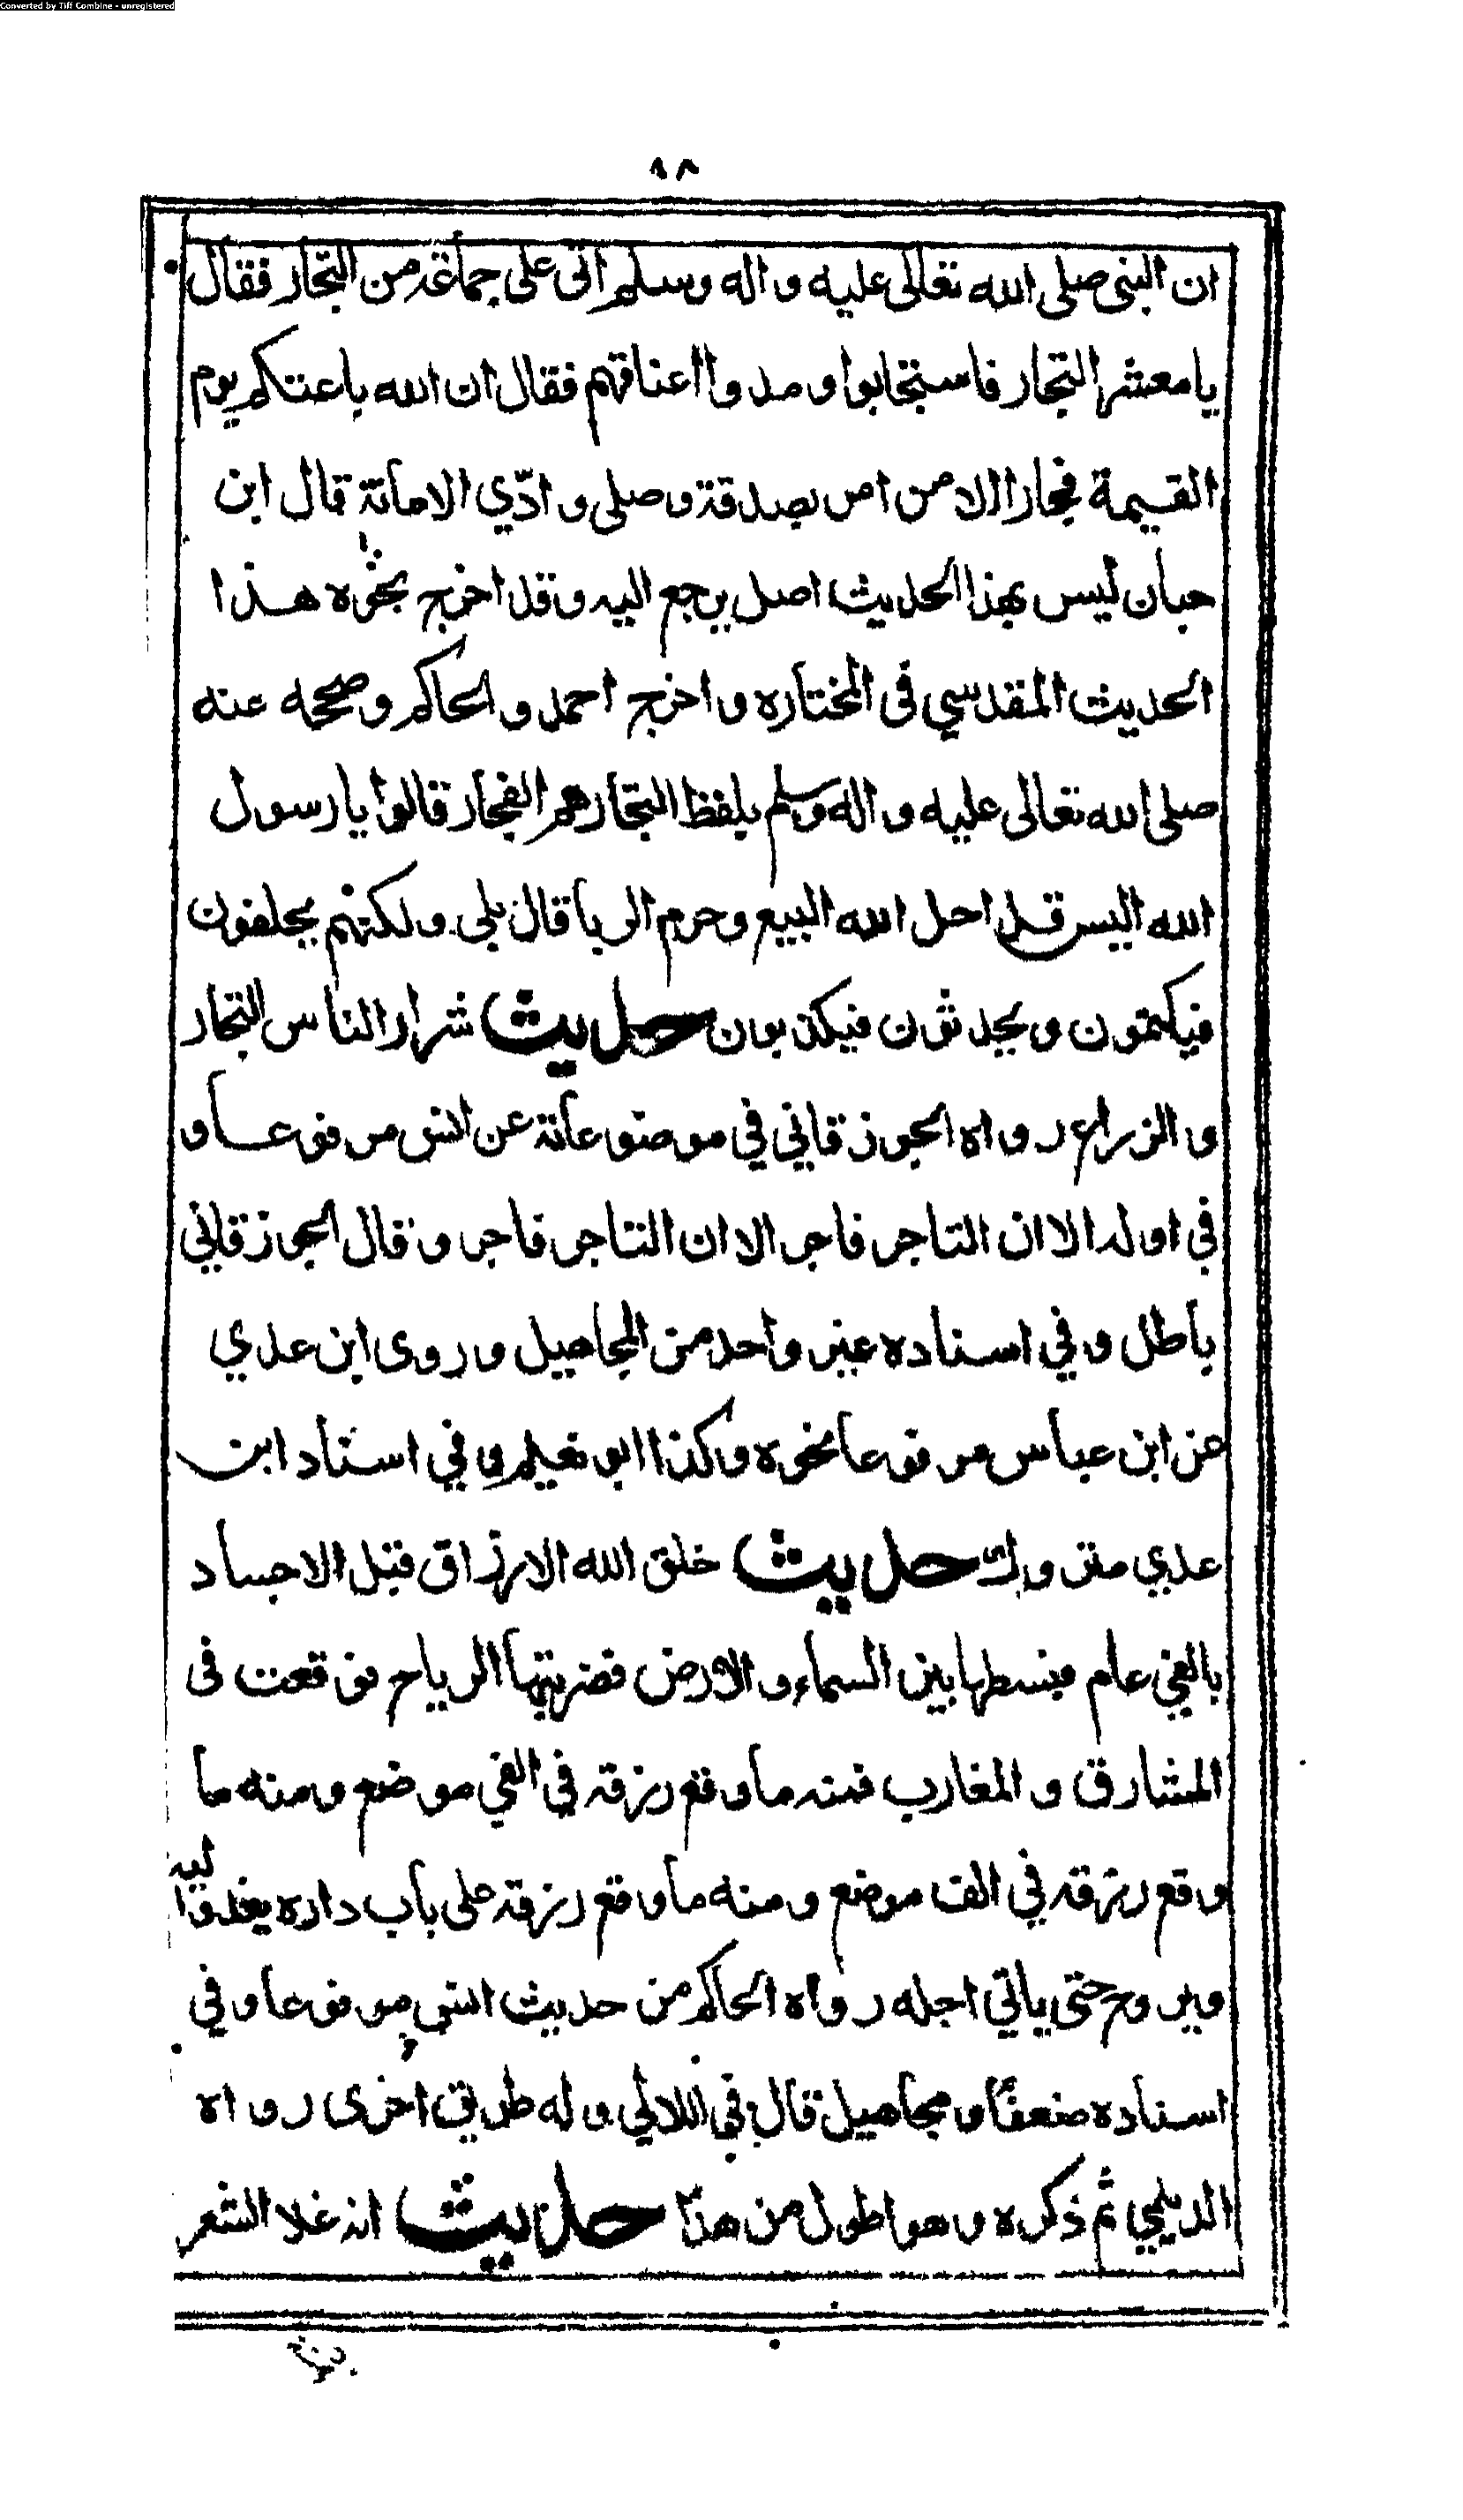 Converted by Tiff Combine - unregistered
٩٨
ان النبى صلى الله تعالى عليه واله وسلم اتى على جماعة من التجار فقال
يا معشر التجار فاستجابوا ومدوا اعناقهم فقال ان الله باعثكم يوم
القيمة فجارا الا من امن بصدقة وصلى وادّي الامانة قال ابن
حبان ليس بهذا الحديث اصل يرجع اليه وقد اخرج بنحوه هذا
الحديث المقدسي فى المختاره واخرج احمد والحاكم وصححه عنه
صلى الله تعالى عليه واله وسلم بلفظ التجار هم الفجار قالوا يا رسول
الله اليس قد احل الله البيع وحرم الربا قال بلى ولكنهم يحلفون
فيكتمون ويحدثون فيكذبون حديث شرار الناس التجار
والزراع رواه الجوزقاني في موضوعاته عن انس مرفوعا و
في اوله الا ان التاجر فاجر الا ان التاجر فاجر وقال الجوزقاني
باطل وفي اسناده غير واحد من المجاهيل وروى ابن عدي
عن ابن عباس مرفوعا نحوه وكذا ابو نعيم وفي اسناد ابن
عدي متروك حديث خلق الله الارزاق قبل الاجساد
بالفي عام فبسطها بين السماء والارض فضربتها الرياح فوقعت فى
المشارق والمغارب فمنه ما وقع رزقه في الفي موضع ومنه ما
وقع رزقه في الف موضع ومنه ما وقع رزقه على باب داره يغدوا ليه
ويروح حتى ياتي اجله رواه الحاكم من حديث انس مرفوعا وفي
اسناده ضعفا ومجاهيل قال في اللالي وله طريق اخرى رواه
الديلمي ثم ذكره وهو اطول من هذا حديث انه غلا السعر